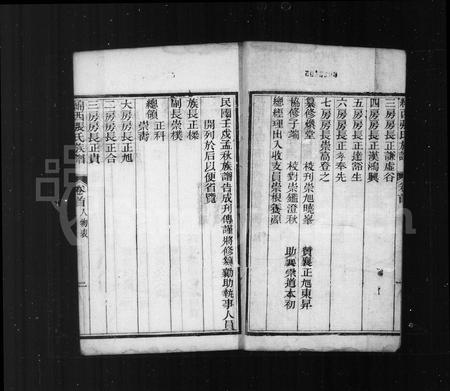 民國壬戌孟秋族譜告成刊傳謹將修纂勷助執事人員
開列於后以便省覽
族長正樑
副長崇樸
總領正科
崇壽
大房房長正旭
二房房長正合
三房房長正貴
西張氏族譜 卷首
三房房長正謙虛谷
四房房長正漢鴻興
五房房長正達裕生
六房房長正孝奉先
七房房長崇高登之
纂修藥堂 校刊崇旭曉峯 贊襄正旭東昇
協修子端 校對崇鑑澄秋 助襄崇道本初
總經理出入收支員崇根養源